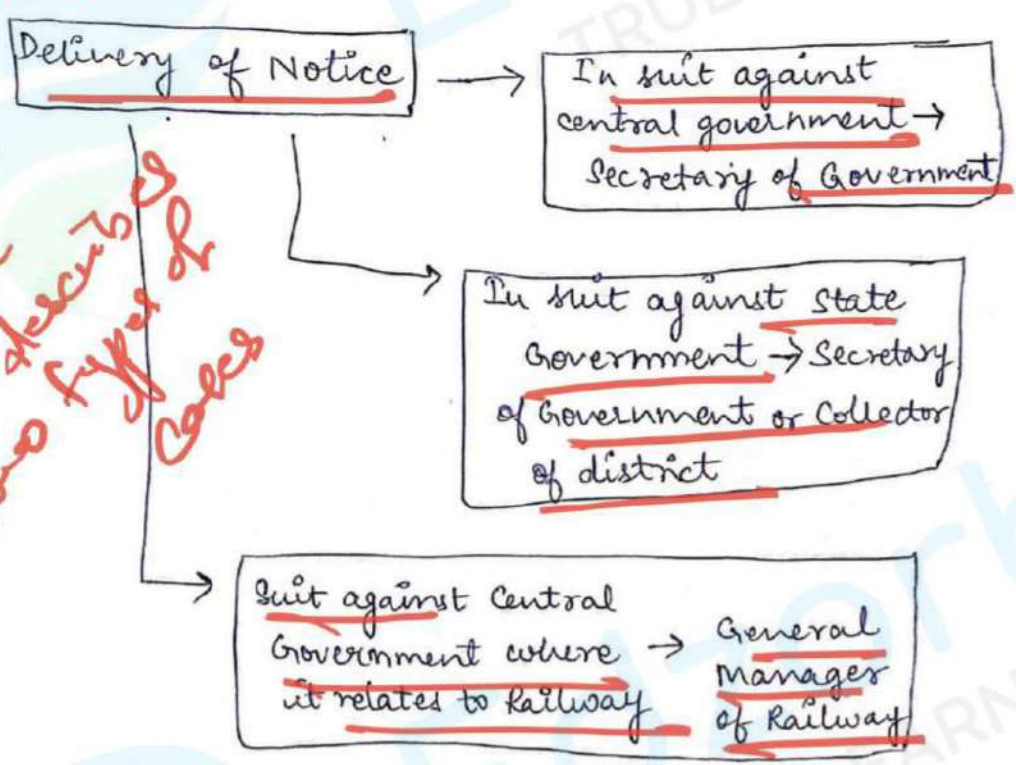 Delivery of Notice
In suit against
central government →
Secretary of Government
In suit against State
Government → Secretary
of Government or Collector
of district
Suit against Central
Government where →
it relates to Railway
General
Manager
of Railway
describes
types of
Cases
TRU
EARN